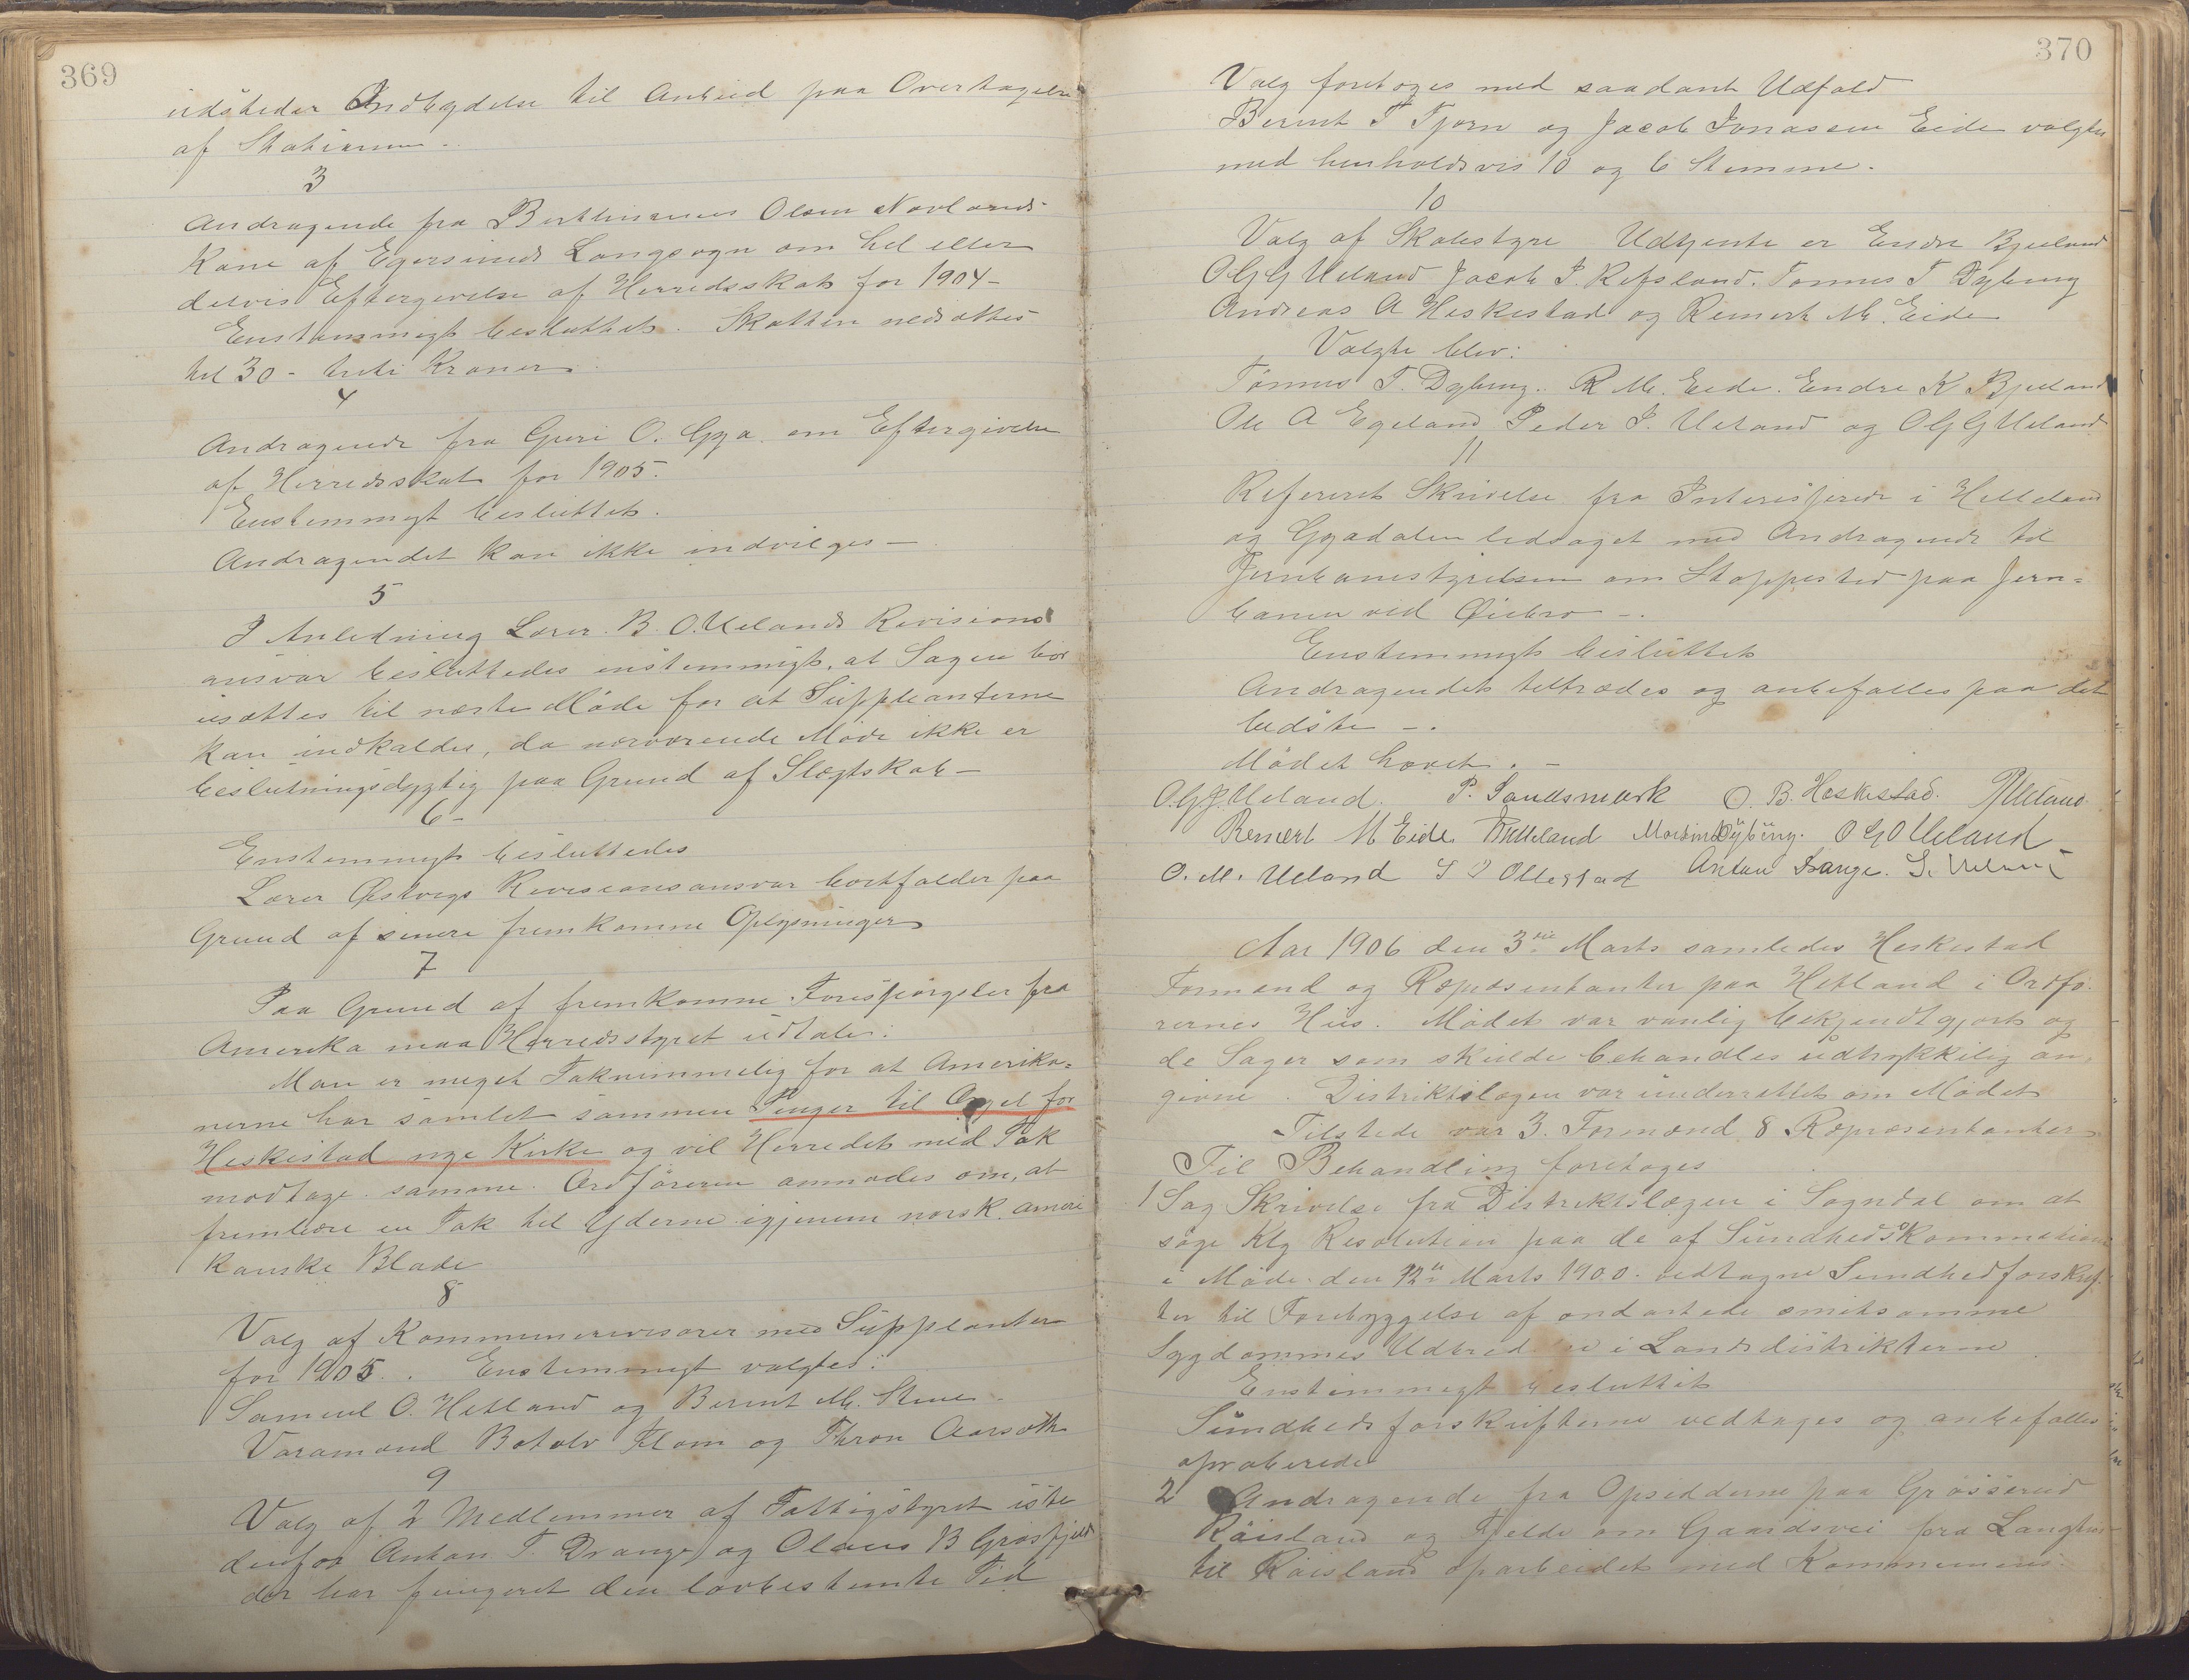 369
udsteder Indbydelse til Anbud paa Overtagelse
af Skatiennen.
3
Andragende fra Berthinanus Olsen Navlands
Kone af Egersunds Landsogn om hel eller
delvis Eftergivelse af Herredsskat for 1904-
Enstemmigt besluttet. Skatten nedsættes
til 30 - treti Kroner.
4
Andragende fra Guri O. Gya. om Eftergivelse
af Herredsskat for 1905.
Enstemmigt besluttet.
Andragendet kan ikke indvilges —
5
I Anledning Lærer B. O. Uelands Revisions
ansvar besluttedes enstemmigt, at Sagen bør
usættes til næste Møde for at Suppleanterne
kan indkaldes, da nærværende Møde ikke er
beslutningsdygtig paa Grund af Slegtskab —
6 -
Enstemmigt besluttedes
Lærer Østveigs Revisionsansvar bortfalder paa
Grund af senere fremkomne Oplysninger
7
Paa Grund af fremkomne Forespørgsler fra
Amerika maa Herredsstyret udtale:
Man er meget Taknemmelig for at Amerika-
nerne har samlet sammen Penger til Orgel for
Heskestad nye Kirke og vil Herredet med Tak
modtage samme. Ordføreren anmodes om, at
frembære en Tak til Yderne igjenem norsk. ameri
kanske Blade
8
Valg af Kommunerevisorer med Supplanter
for 1905. . Enstemmigt valgtes:
Samuel O. Hetland og Berent M. Stene.
Varamænd Botolv Flom og Thron Aarsvoth
9
Valg af 2 Medlemmer af Fattigstyret iste
denfor Anton T. Drange og Olaus B Grøsfjeld
der har fungeret den lovbestemte Tid
370
Valg foretoges med saadant Udfald
Berent T Tjørn og Jacob Jonassen Eide valgtes
med henholdsvis 10 og 6 Stemme.
10
Valg af Skolestyre Udtjente er Endre Bjueland
O G G Ueland Jacob J. Refsland. Tønnes T Dybing
Andreas A Heskestad og Reinert M. Eide
Valgte blev:
Tønnes T. Dybing. R M. Eide. Endre K Bjueland
Ole A Egeland Peder J. Ueland og O G G Ueland
11
Refereret Skrivelse fra Interesserede i Helleland
og Gyadalen ledsaget med Andragende til
Jernbanestyrelsen om Stoppested paa Jern-
banen ved Øiebro —.
Enstemmigt besluttet
Andragendet tiltrædes og anbefalles paa det
bedste —.
Mødet hævet. —
O. G. G. Ueland. P. Sandsmark O. B. Heskestad. P Ueland.
Reinert M Eide. Ueland Martin Dybing. O G O Ueland
O. M. Ueland T O Ollestad Anton Drange. S. Ueland
Aar 1906 den 3die Marts samledes Heskestad
Formænd og Repræsentanter paa Hetland i Ordfø-
rernes Hus. Mødet var vanlig bekjendtgjort og
de Sager som skulde behandles udtrykkilig an-
givne. Distriktslægen var underrettet om Mødet
Tilstede var 3. Formænd 8 Repræsentanter
Til Behandling foretoges
1 Sag Skrivelse fra Distriktslægen i Sogndal om at
søge Klg Resolution paa de af Sundhedskommesionen
i Møde den 12te Marts 1900. vedtagne Sundhedforskrif-
ter til Forebyggelse af ondartede smitsomme
Sygdommes Udbredelse i Landsdistrikterne
Enstemmigt besluttet
Sundhedsforskrifterne vedtages og anbefalles
aproberede
2 Andragende fra Opsidderne paa Grøssereid
Røisland og Fjelde om Gaardsvei fra
til Røisland oparbeidet med Kommunens